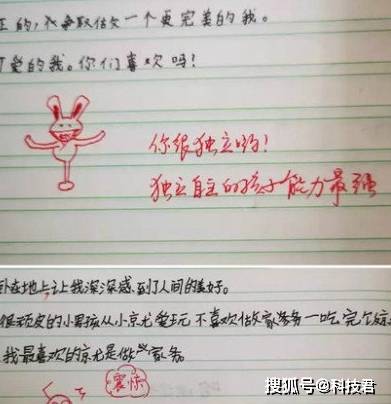 正的，我争取做一个更完美的我。
可爱的我。你们喜欢吗！
你很独立哟！
独立自主的孩子能力最强
卧在地上让我深深感到了人间的美好。
很顽皮的小男孩从小就爱玩不喜欢做家务一吃完
我最喜欢的就是做家务。
震惊
搜狐号@科技君